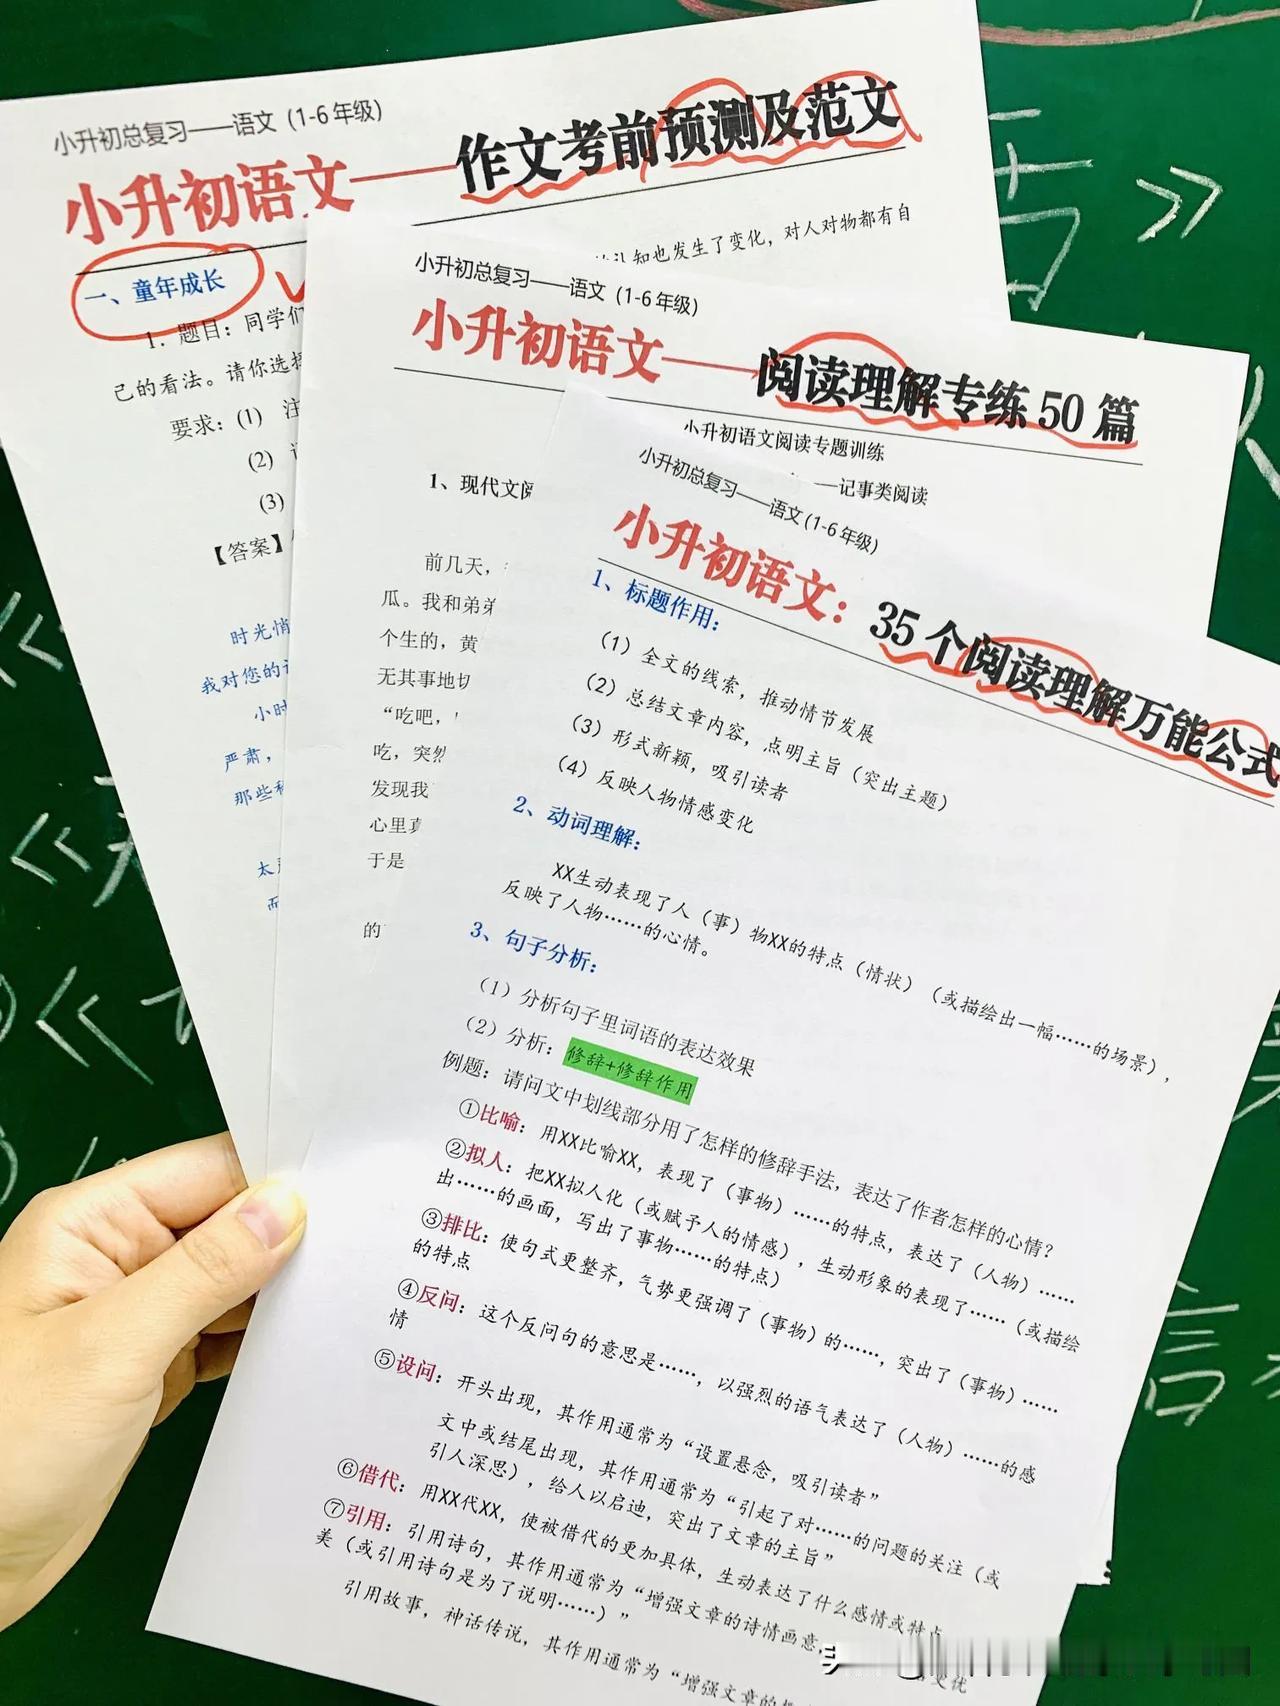 小升初总复习——语文（1-6年级）
小升初语文——作文考前预测及范文
一、童年成长
1. 题目：同学们
认知也发生了变化，对人对物都有自
己的看法。请你选择
要求：(1) 注
(2)
(3)
【答案】
时光悄
我对您的
小时
严肃，
那些
太
而
小升初总复习——语文（1-6年级）
小升初语文——阅读理解专练50篇
小升初语文阅读专题训练
——记事类阅读
1、现代文阅
前几天，
瓜。我和弟弟
个生的，黄
无其事地切
“吃吧，
吃，突然
发现我
心里真
于是
的
小升初总复习——语文（1-6年级）
小升初语文：35个阅读理解万能公式
1、标题作用：
（1）全文的线索，推动情节发展
（2）总结文章内容，点明主旨（突出主题）
（3）形式新颖，吸引读者
（4）反映人物情感变化
2、动词理解：
XX生动表现了人（事）物XX的特点（情状）（或描绘出一幅……的场景），
反映了人物……的心情。
3、句子分析：
（1）分析句子里词语的表达效果
（2）分析：修辞+修辞作用
例题：请问文中划线部分用了怎样的修辞手法，表达了作者怎样的心情？
①比喻：用XX比喻XX，表现了（事物）……的特点，表达了（人物）……
②拟人：把XX拟人化（或赋予人的情感），生动形象的表现了……（或描绘
出……的画面，写出了事物……的特点）
③排比：使句式更整齐，气势更强调了（事物）的……，突出了（事物）……
的特点
④反问：这个反问句的意思是……，以强烈的语气表达了（人物）……的感
情
⑤设问：开头出现，其作用通常为“设置悬念，吸引读者”
文中或结尾出现，其作用通常为“引起了对……的问题的关注（或
引人深思），给人以启迪，突出了文章的主旨”
⑥借代：用XX代XX，使被借代的更加具体，生动表达了什么感情或特点
⑦引用：引用诗句，其作用通常为“增强文章的诗情画意，
美（或引用诗句是为了说明……）”
引用故事，神话传说，其作用通常为“增强文章的